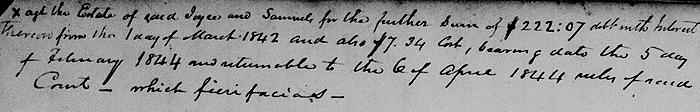 x agst the Estate of said Joyce and Samuels for the further Sum of $222:07 debt with Interest
thereon from the 1 day of March 1842 and also $7.34 Cost, bearing date the 5 day
of February 1844 and returnable to the 6 of April 1844 rules of said
Court - which fieri facias -